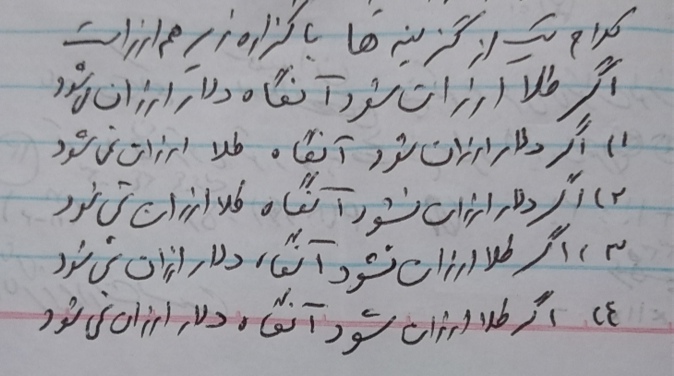 کدام یک از گزینه ها با گزاره زیر هم ارزات
اگر طلا ارزان شود آنگاه دلار ارزان می شود
۱) اگر دلار ارزان شود آنگاه طلا ارزان نمی شود
۲) اگر دلار ارزان نشود آنگاه طلا ارزان نمی شود
۳) اگر طلا ارزان نشود آنگاه دلار ارزان نمی شود
۴) اگر طلا ارزان شود آنگاه دلار ارزان نمی شود